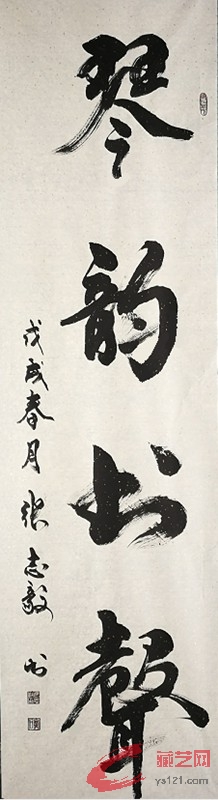 琴韵书聲
戊戌春月 张志毅 书
藏艺网
ys121.com